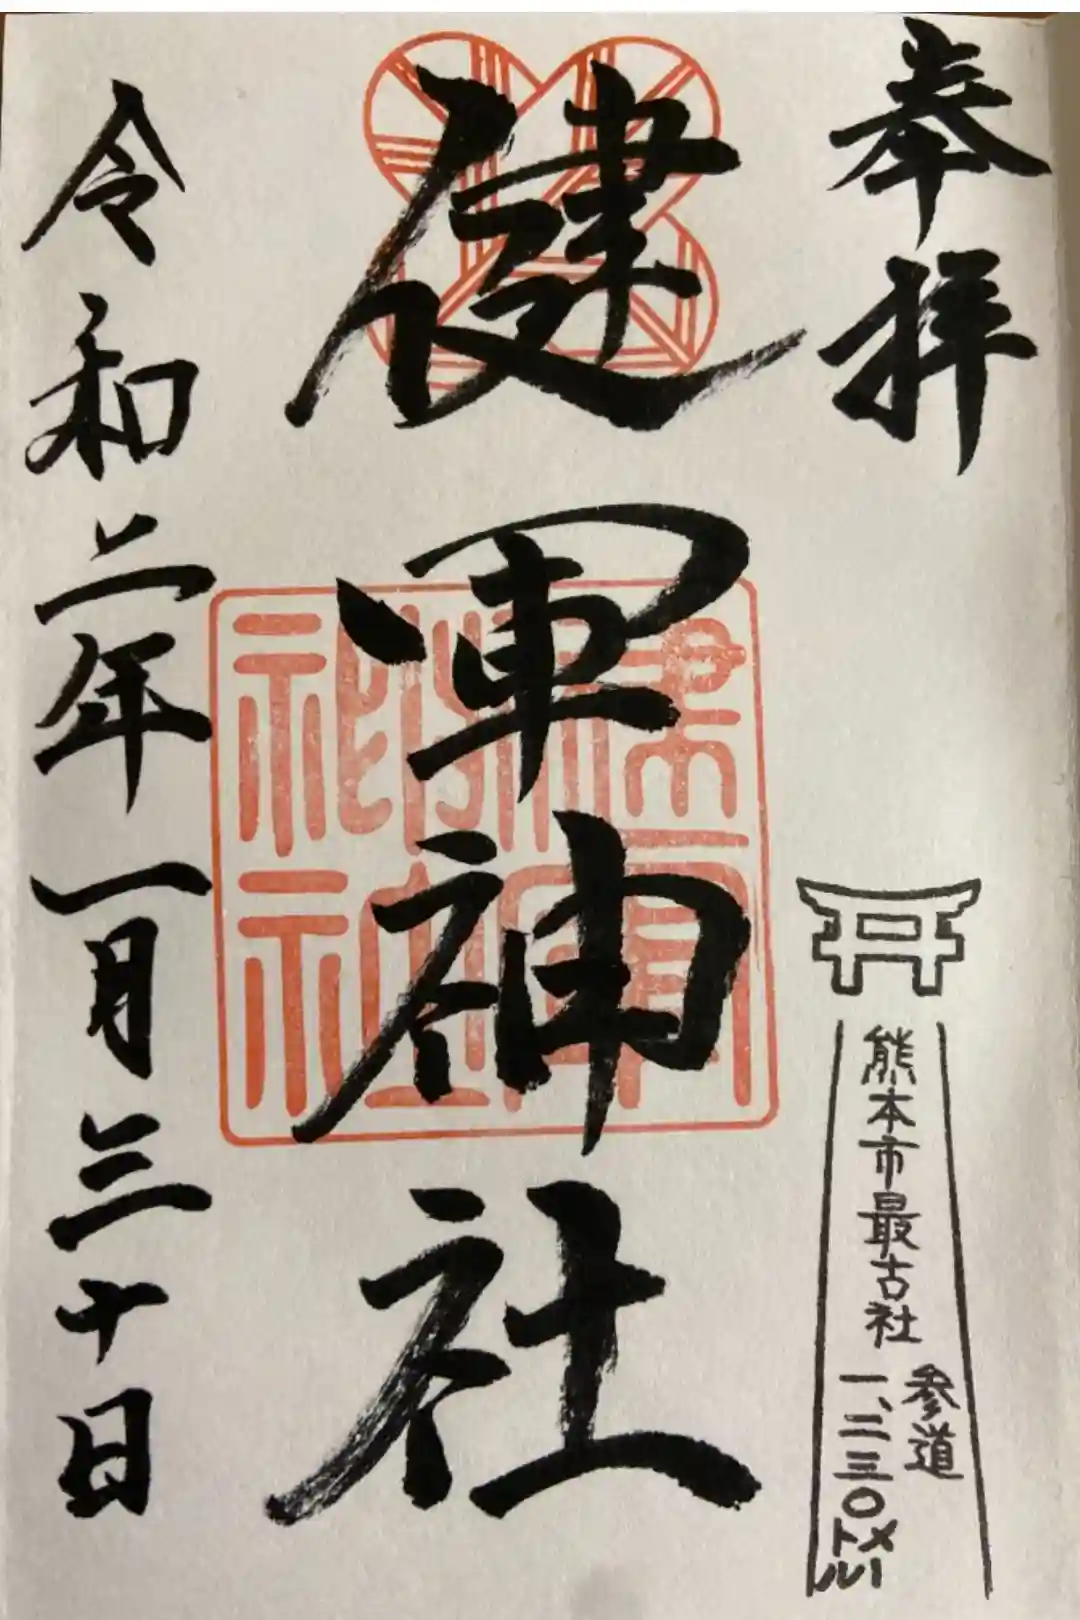 奉拝
熊本市最古社
参道
一、二三〇メートル
健軍神社
健軍
神社
令和二年一月三十日